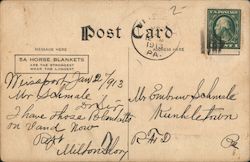 Post Card
MESSAGE HERE
ADDRESS HERE
5A HORSE BLANKETS
ARE THE STRONGEST
WEAR THE LONGEST
PA.
Weissport, Jan 2/1913
Mr Schmale
Dr Sir
I have those Blankets
on Hand Now
Milton
Mr Schmale
Kunkletown
R F D
Pa